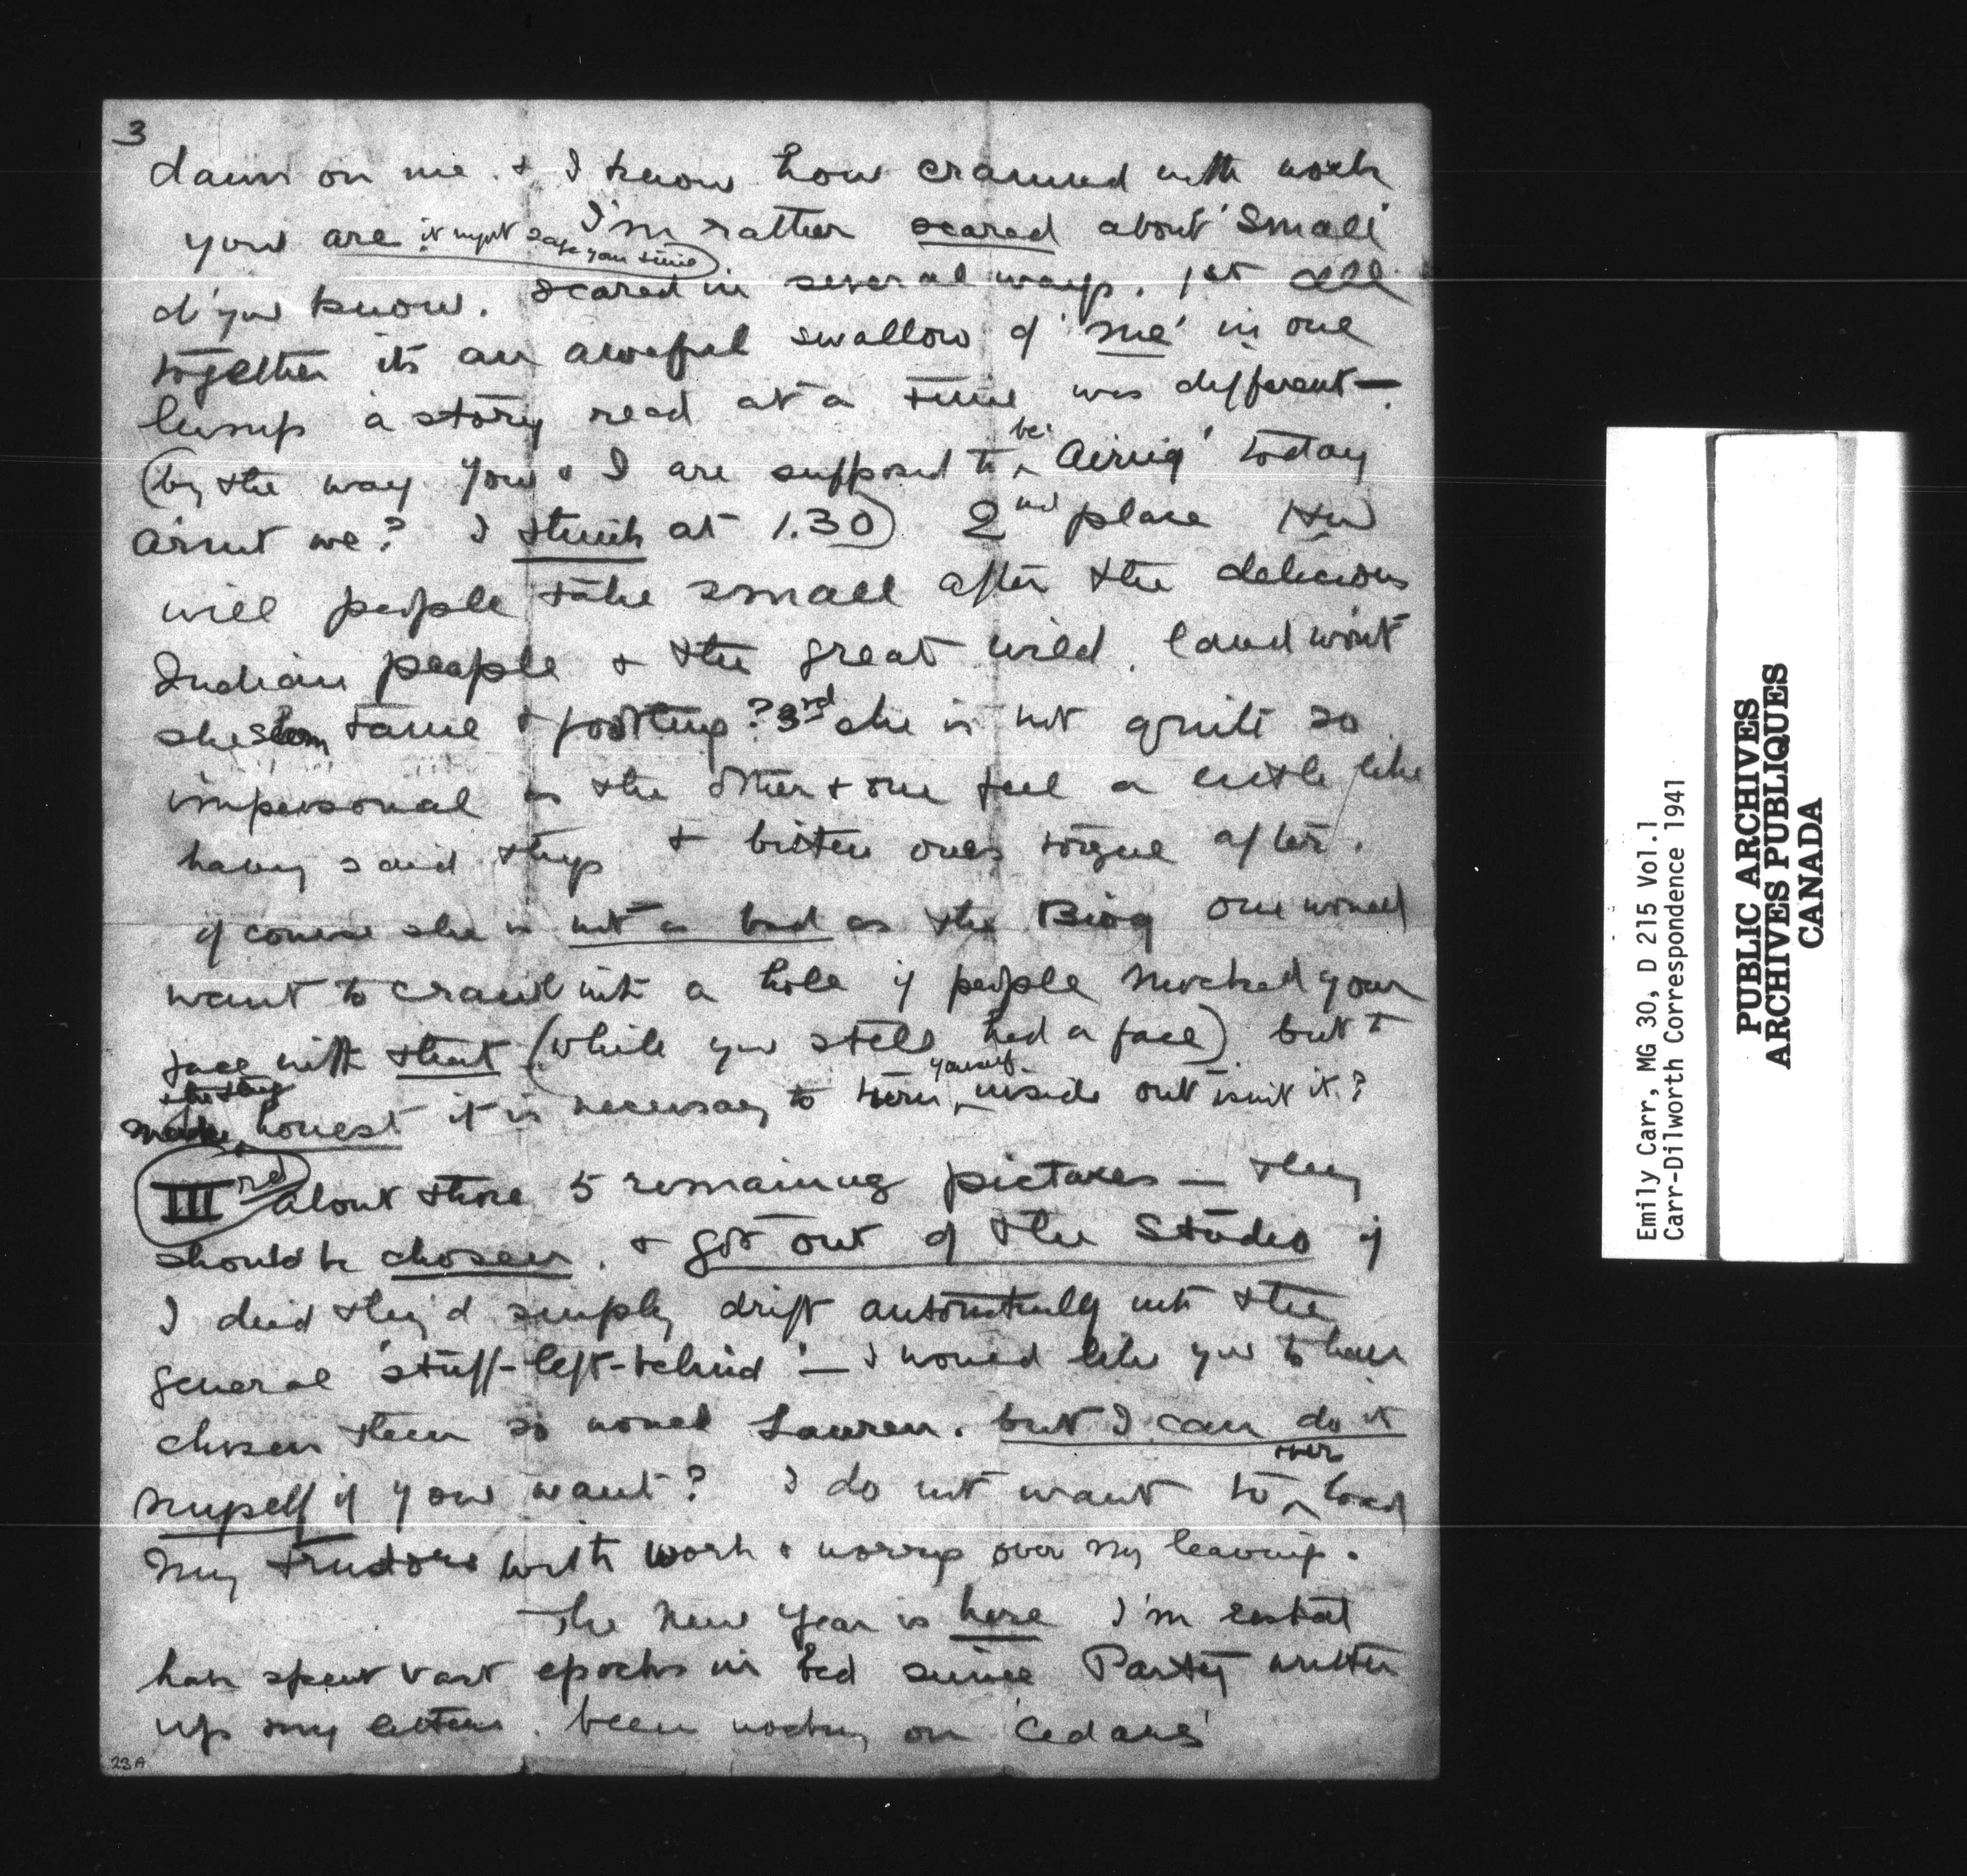 3
dawn on me. & I know how crammed with work
you are it might save your time I'm rather scared about 'Small'
d'you know. Scared in several ways. 1st all
together its an aweful swallow of 'me' in one
lump a story read at a time was different —.
(by the way you & I are supposed to be 'Airing' today
ain't we? I think at 1.30) 2nd place How
will people take small after the delicious
Indian people & the great wild. land won't
she seem tame & footling? 3rd she is not quite so
impersonal as the other & one feel a little like
having said things & bitten ones tongue after.
of course she is not as bad as the Biog one would
want to crawl into a hole if people smacked your
face with that (while you still had a face) but to
make the thing honest it is necessary to turn yourself inside out isnit it?
IIIrd about those 5 remaining pictures — they
should be chosen. & got out of the Studio if
I died they'd simply drift automatically into the
general 'stuff-left-behind' — I would like you to have
chosen them so would Lawren. but I can do it
myself if you want? I do not want to over load
my trustors with work & worry over my leavings.
The New Year is here I'm
have spent vast epochs in bed since Party written
up my letters. been working on 'Cedars'
23A
Emily Carr, MG 30, D 215 Vol.1
Carr-Dilworth Correspondence 1941
PUBLIC ARCHIVES
ARCHIVES PUBLIQUES
CANADA